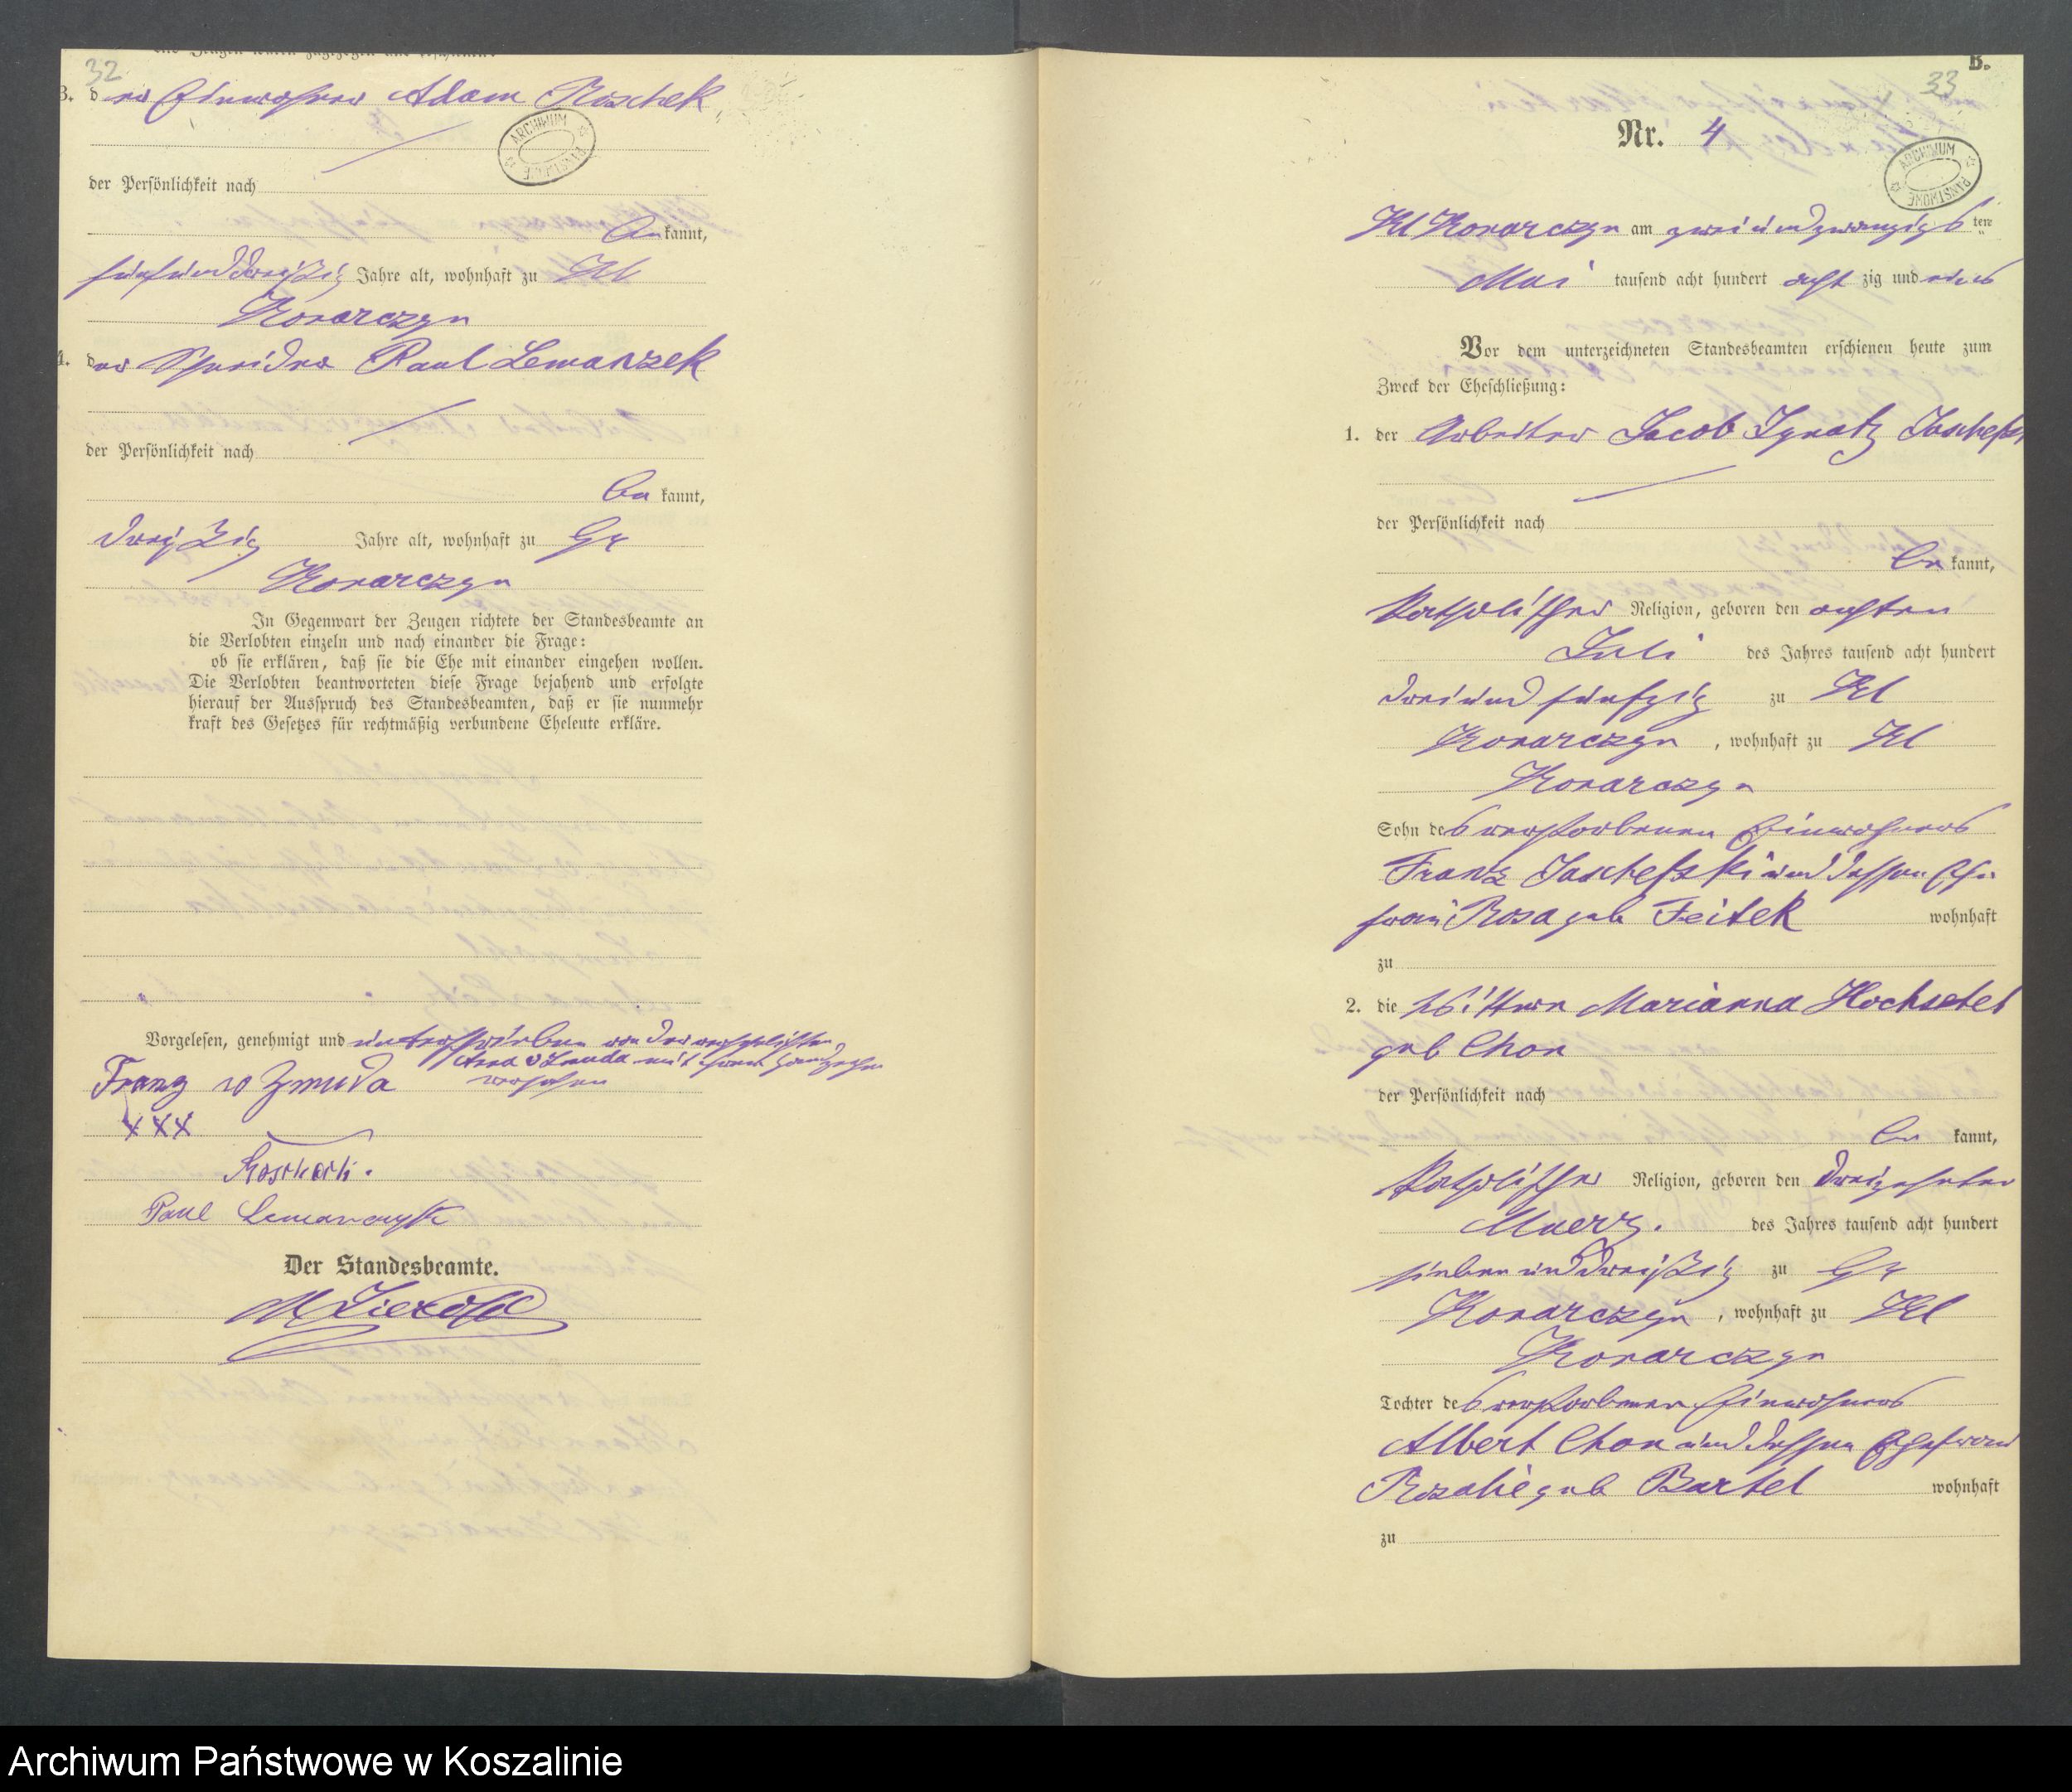 32
3. der Einwohner Adam Roschek
ARCHIWUM
der Persönlichkeit nach
be kannt,
fünfunddreißig Jahre alt, wohnhaft zu Kl
Konarczyn
4. der Schneider Paul Lemanzek
der Persönlichkeit nach
be kannt,
dreißig Jahre alt, wohnhaft zu Gr
Konarczyn
In Gegenwart der Zeugen richtete der Standesbeamte an
die Verlobten einzeln und nach einander die Frage:
ob sie erklären, daß sie die Ehe mit einander eingehen wollen.
Die Verlobten beantworteten diese Frage bejahend und erfolgte
hierauf der Ausspruch des Standesbeamten, daß er sie nunmehr
kraft des Gesetzes für rechtmäßig verbundene Eheleute erkläre.
Vorgelesen, genehmigt und unterschrieben von der verehelichten
Anna v Zmuda mit ihrem Handzeichen
versehen
Franz v Zmuda
XXX
Paul Lemanczyk
Der Standesbeamte.
33
B.
Nr. 4
ARCHIWUM PAŃSTWOWE
Kl Konarczyn am zweiundzwanzigs ten
Mai tausend acht hundert acht zig und eins
Vor dem unterzeichneten Standesbeamten erschienen heute zum
Zweck der Eheschließung:
1. der Arbeiter Jacob Ignatz Jaschefski
der Persönlichkeit nach
be kannt,
katholischer Religion, geboren den achten
Juli des Jahres tausend acht hundert
dreiundfünfzig zu Kl
Konarczyn, wohnhaft zu Kl
Konarczyn
Sohn des verstorbenen Einwohners
Franz Jaschefski und dessen Ehe
frau Rosa geb Feitek wohnhaft
zu
2. die Wittwe Marianna Hochsetel
geb Chon
der Persönlichkeit nach
be kannt,
katholischer Religion, geboren den dreizehnten
Maerz. des Jahres tausend acht hundert
siebenunddreißig zu Gr
Konarczyn, wohnhaft zu Kl
Konarczyn
Tochter des verstorbenen Einwohners
Albert Chon und dessen Ehefrau
Rosalie geb Bartel wohnhaft
zu
Archiwum Państwowe w Koszalinie